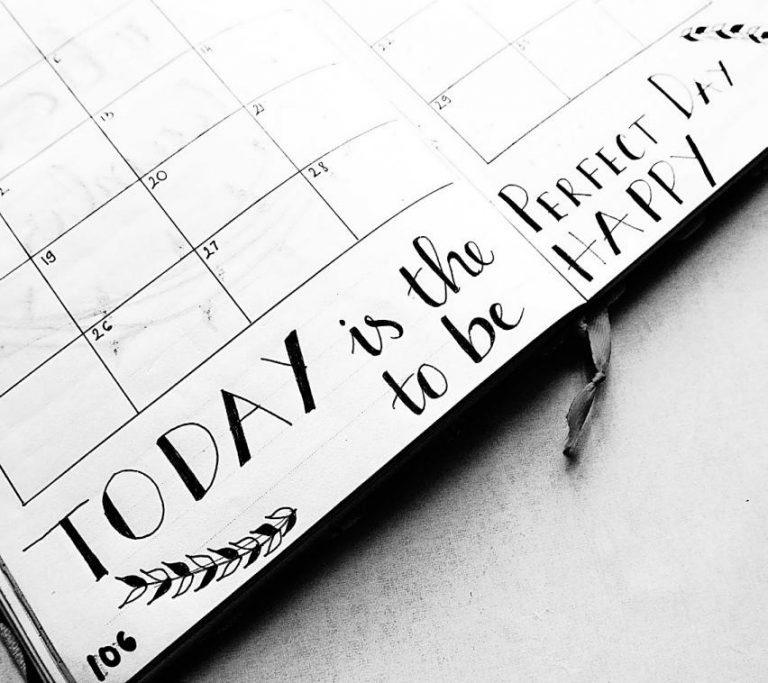 6
13 14
19 20 21
26 27 28
22
29
TODAY is the PERFECT DAY
to be HAPPY
106